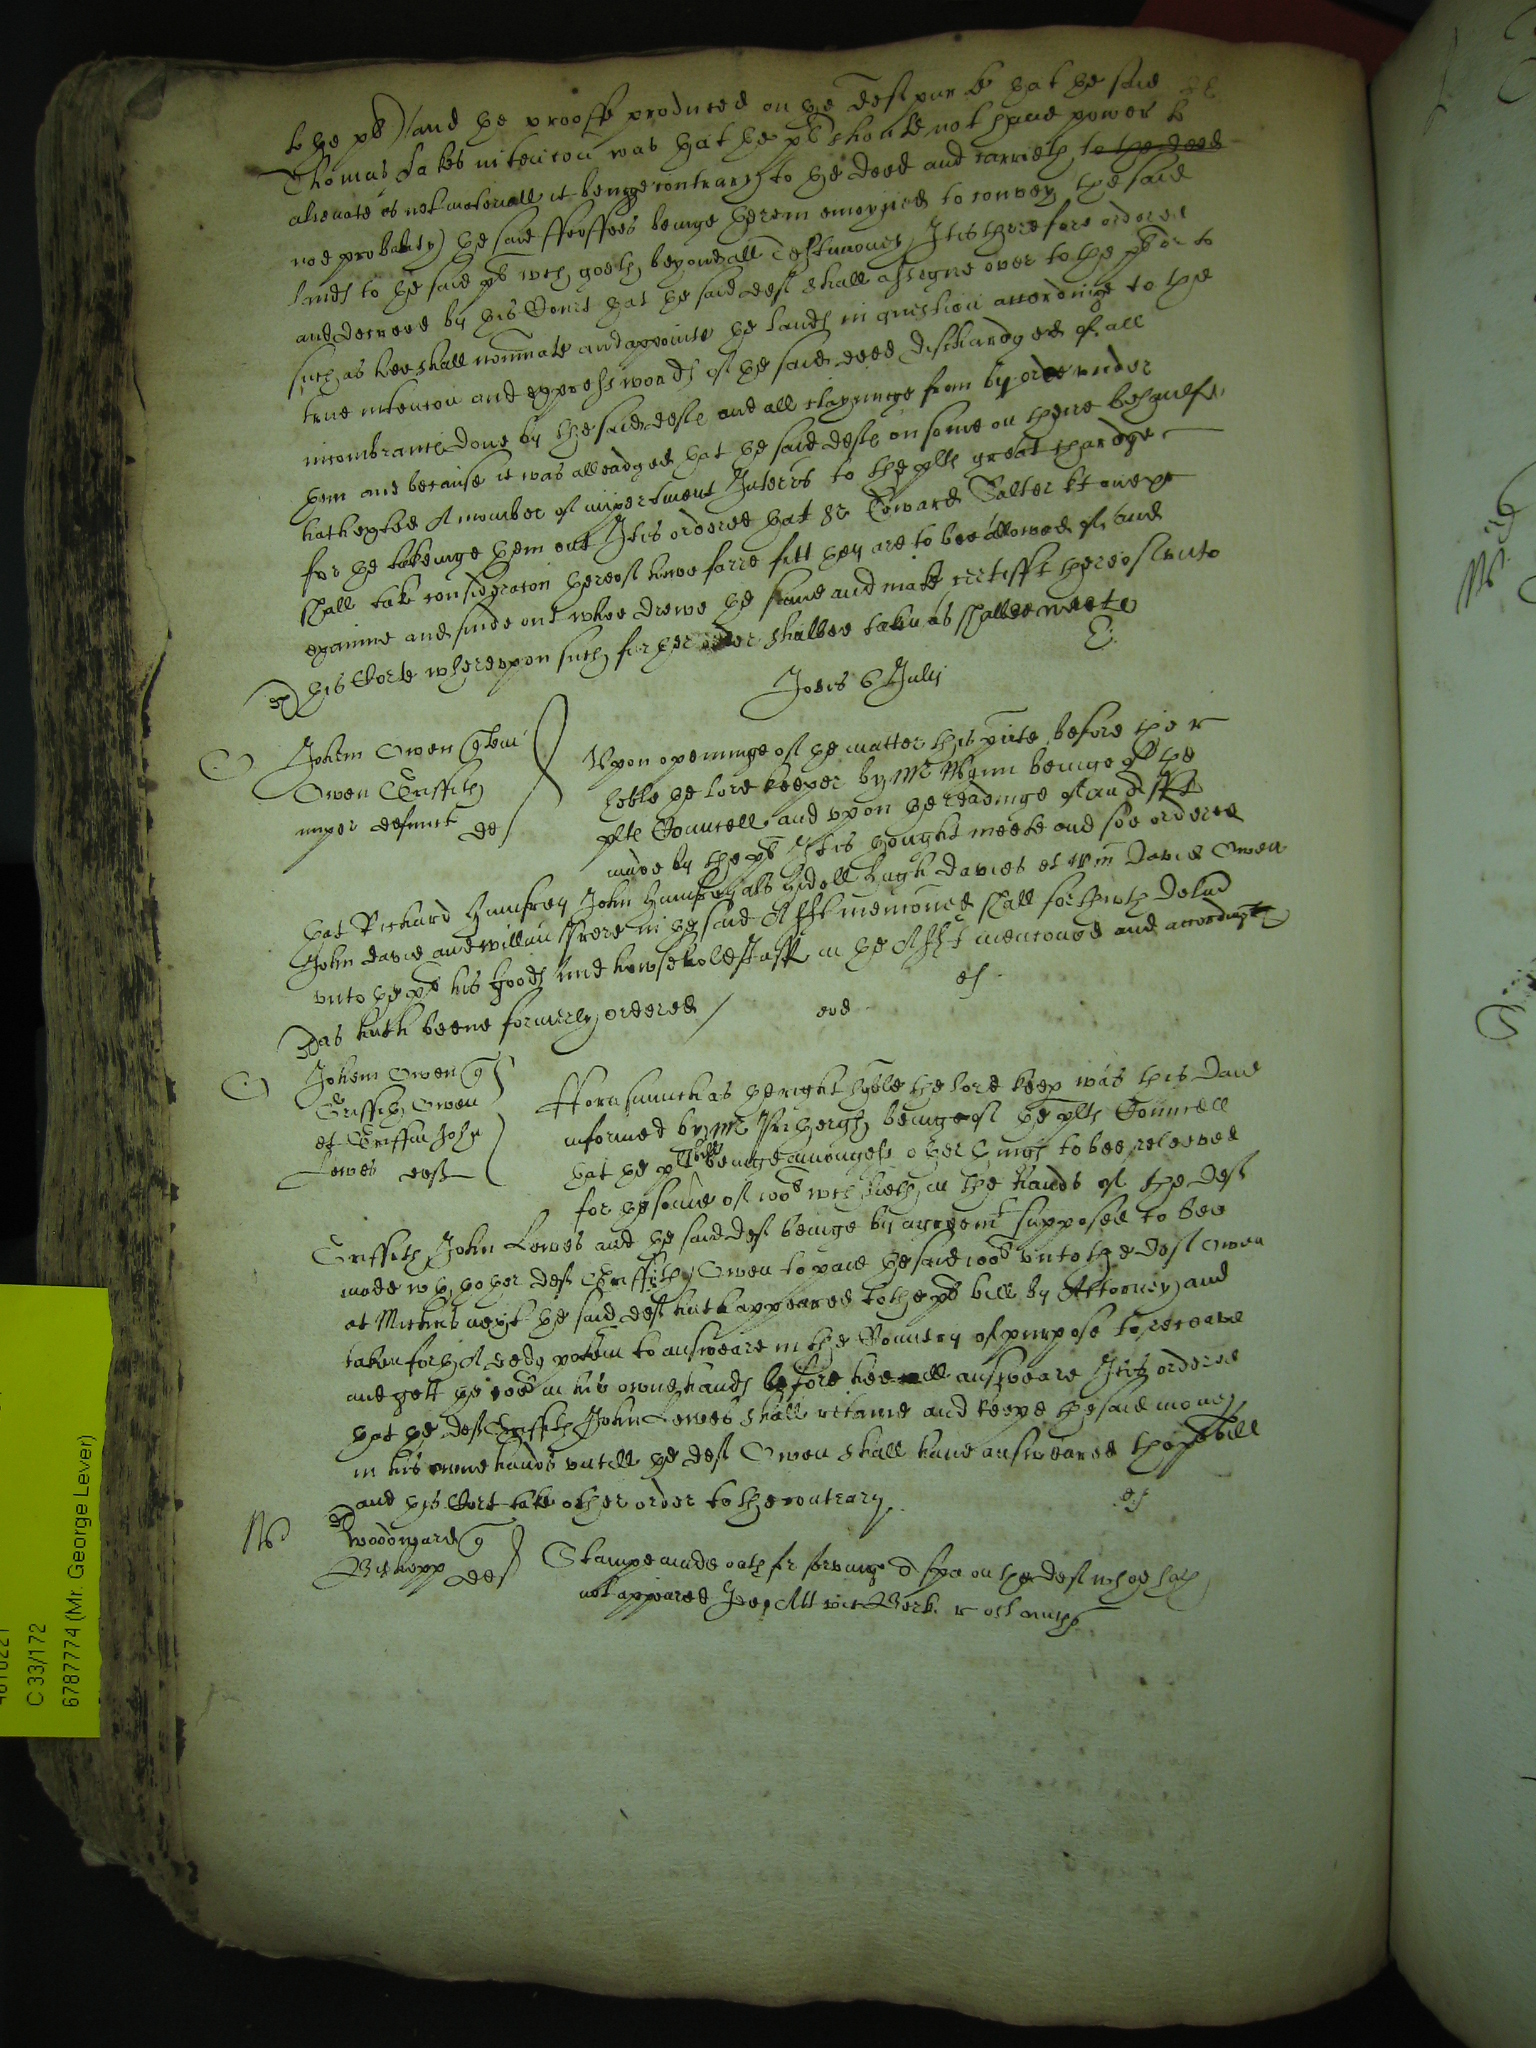 to the pl) and the prooffe produced on the deft parte that the said
Thomas Lakes intencion was that the pl should not have power to
alienate is not materiall it beinge contrary to the deed and carrieth to the deed
noe probabilty) the said ffeoffees beinge therein enioyned to convey the said
lands to the said pl wch goeth beyond all Testimonies, It is therefore ordered
and decreed by this Court that the said deft shall assigne over to the pl or to
such as hee shall nominate and appointe the lands in question accordinge to the
true intencion and expresse words of the said deed discharged of all
incombrances done by the said deft and all clayminge from by or under
them and because it was alleadged that the said deft or some on there behaulfe
hath exhibited a nomber of impertinent Interrs to the plts great chardge
for the takeinge them out It is ordered that Sr Edward Salter kt one &c
shall take consideracon thereof howe farre fitt they are to bee allowed of, and
examine and finde out whoe drewe the same and make certifft thereof unto
this Corte whereupon such further order shalbee taken as shalbee meete
Jovis 6 July
Johem Owen q
Owen Griffith
nuper defunct def
Upon openinge of the matter this pnte before the r
hoble the lord keeper by Mr Wynn beinge of the
plts Councell and upon the readinge of an affidt
made by the pl It is thought meete and soe ordered
that Richard Humfrey John Humfrey als Hugh Davies et Wm David Owen
John David and William in the said Affidt mencioned shall forthwth deliver
unto the pl his goods and howsehold stuff in the Affidt mencioned and accordinge
as hath beene formerly ordered /
Johem Owen q
Griffith Owen
et Griffin John
Lewes def
Forasmuch as the right hoble the lord keep was this daie
informed by Mr beinge of the plts Councell
that the plts bill beinge amongest other things to bee releeved
for the some of 100l wch lieth in the hands of the deft
Griffith John Lewes and the said deft beinge by agreemt supposed to bee
made wth thother deft Griffith Owen to paie the said 100l unto the deft Owen
at Michs next the said deft hath appeared to the pl bill by Attorney and
taken forth A ded potem to answeare in the Country of purpose to receave
and gett the 100l in his owne hands before hee will answeare It is ordered
that the deft Griffith John Lewes shall retaine and keepe the said money
in his owne hands untill the deft Owen shall have answeared the pl bill
and this Cort take other order to the contrary
Woodward q
Bishopp def
Stampe made oath for servinge a spa on the deft whoe hath
not appeared Att vic Berk
C 33/172
6787774 (Mr. George Lever)